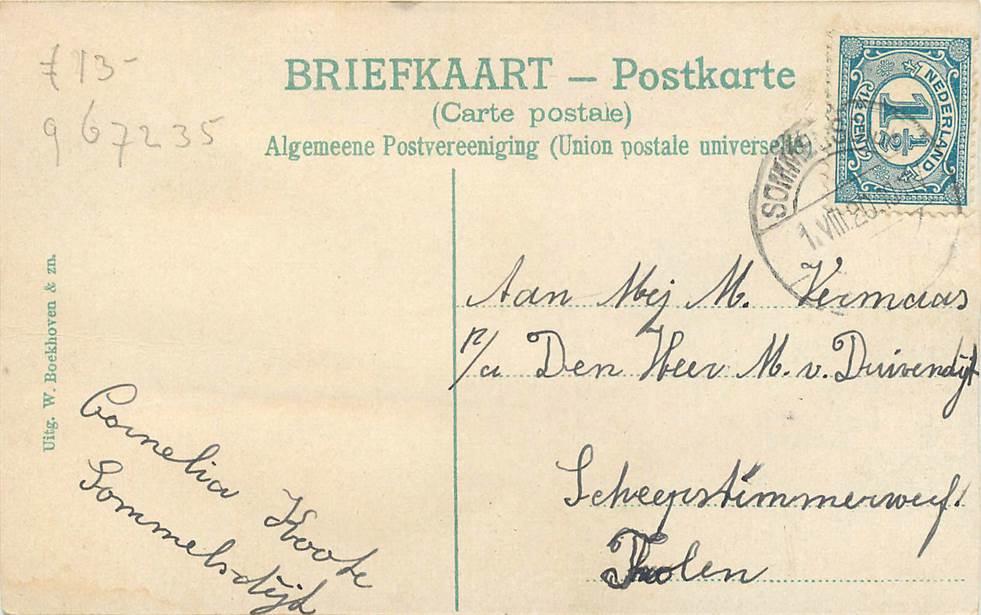 ƒ 13-
967235
BRIEFKAART – Postkarte
(Carte postale)
Algemeene Postvereeniging (Union postale universelle)
NEDERLAND
1½
1½ CENT
SOMMELSD
1.VIII.20
Aan Mej M. Vermaas
p/a Den Heer M. v. Duivendijk
Scheepstimmerwerf.
Tholen
Uitg. W. Boekhoven & zn.
Cornelia Koote
Sommelsdijk